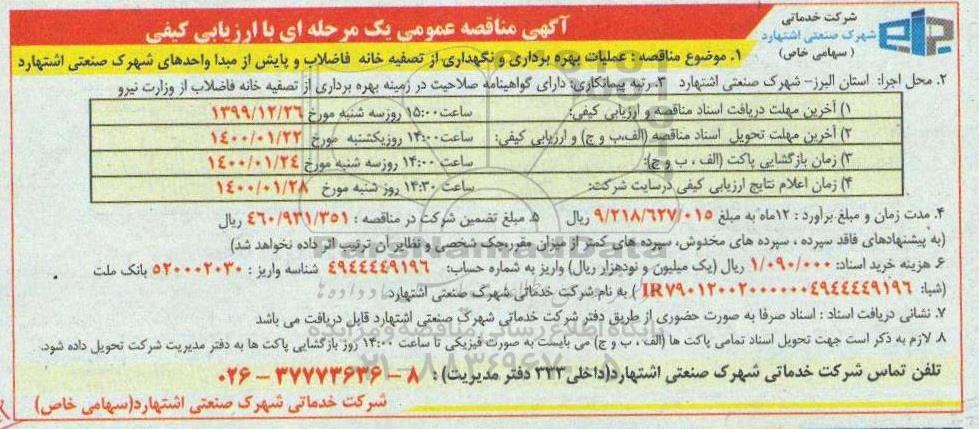 شرکت خدماتی
شهرک صنعتی اشتهارد
(سهامی خاص)
آگهی مناقصه عمومی یک مرحله ای با ارزیابی کیفی
۱. موضوع مناقصه : عملیات بهره برداری و نگهداری از تصفیه خانه فاضلاب و پایش از مبدا واحدهای شهرک صنعتی اشتهارد
۲. محل اجرا: استان البرز– شهرک صنعتی اشتهارد ۳. رتبه پیمانکاری: دارای گواهینامه صلاحیت در زمینه بهره برداری از تصفیه خانه فاضلاب از وزارت نیرو
۱) آخرین مهلت دریافت اسناد مناقصه و ارزیابی کیفی: ساعت ۱۵:۰۰ روزسه شنبه مورخ ۱۳۹۹/۱۲/۲۶
۲) آخرین مهلت تحویل اسناد مناقصه (الف،ب و ج) و ارزیابی کیفی: ساعت ۱۴:۰۰ روزیکشنبه مورخ ۱۴۰۰/۰۱/۲۲
۳) زمان بازگشایی پاکت (الف ، ب و ج): ساعت ۱۴:۰۰ روزسه شنبه مورخ ۱۴۰۰/۰۱/۲۴
۴) زمان اعلام نتایج ارزیابی کیفی درسایت شرکت: ساعت ۱۴:۳۰ روز شنبه مورخ ۱۴۰۰/۰۱/۲۸
۴. مدت زمان و مبلغ برآورد : ۱۲ماه به مبلغ ۹/۲۱۸/۶۲۷/۰۱۵ ریال ۵. مبلغ تضمین شرکت در مناقصه : ۴۶۰/۹۳۱/۳۵۱ ریال
(به پیشنهادهای فاقد سپرده ، سپرده های مخدوش، سپرده های کمتر از میزان مقرر،چک شخصی و نظایر آن ترتیب اثر داده نخواهد شد)
۶. هزینه خرید اسناد: ۱/۰۹۰/۰۰۰ ریال (یک میلیون و نودهزار ریال) واریز به شماره حساب: ۴۹۴۴۴۴۹۱۹۶ شناسه واریز : ۵۲۰۰۰۲۰۳۰ بانک ملت
(شبا: IR۷۹۰۱۲۰۰۲۰۰۰۰۰۰۴۹۴۴۴۴۹۱۹۶ ) به نام شرکت خدماتی شهرک صنعتی اشتهارد
۷. نشانی دریافت اسناد : اسناد صرفا به صورت حضوری از طریق دفتر شرکت خدماتی شهرک صنعتی اشتهارد قابل دریافت می باشد
۸. لازم به ذکر است جهت تحویل اسناد تمامی پاکت ها (الف ، ب و ج) می بایست به صورت فیزیکی تا ساعت ۱۴:۰۰ روز بازگشایی پاکت ها به دفتر مدیریت شرکت تحویل داده شود.
تلفن تماس شرکت خدماتی شهرک صنعتی اشتهارد(داخلی۳۲۳ دفتر مدیریت) : ۸ – ۳۷۷۷۳۶۳۶ – ۰۲۶
شرکت خدماتی شهرک صنعتی اشتهارد(سهامی خاص)